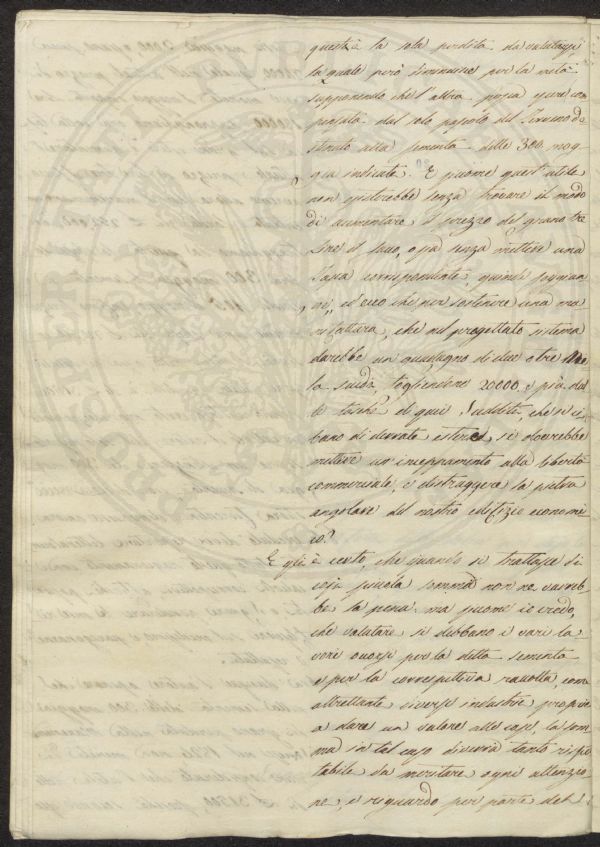 questa è la sola perdita da valutarsi
la quale però diminuisce per la metà
supponendo che l'altra possa esser com
pensata dal solo pascolo del Terreno de
stinato alla sementa delle 300. mog
gia indicate. E siccome quest'utile
non esisterebbe senza trovare il modo
di aumentare il prezzo del grano tre
Lire il sacco, o sia senza mettere una
Tassa corrispondente, quindi
ed ecco che per sostenere una ma
nifattura, che nel progettato sistema
darebbe un guadagno di due o tre Mi
la scudi, togliendone 20000. e più dal
le tasche di quei Sudditi, che si ci
bano di derrate estere, si dovrebbe
mettere un inceppamento alla libertà
commerciale, e distruggere la pietra
angolare del nostro edifizio economi
co?
Egli è certo, che quando si trattasse di
così piccola somma non ne varreb
be la pena: ma siccome io credo,
che valutare si debbano i vari la
vori occorsi per la detta sementa
e per la correspettiva raccolta, come
altrettante diverse industrie proprie
a dare un valore alle cose, la som
ma in tal caso diverrà tanto rispet
tabile da meritare ogni attenzio
ne, e risguardo per parte del